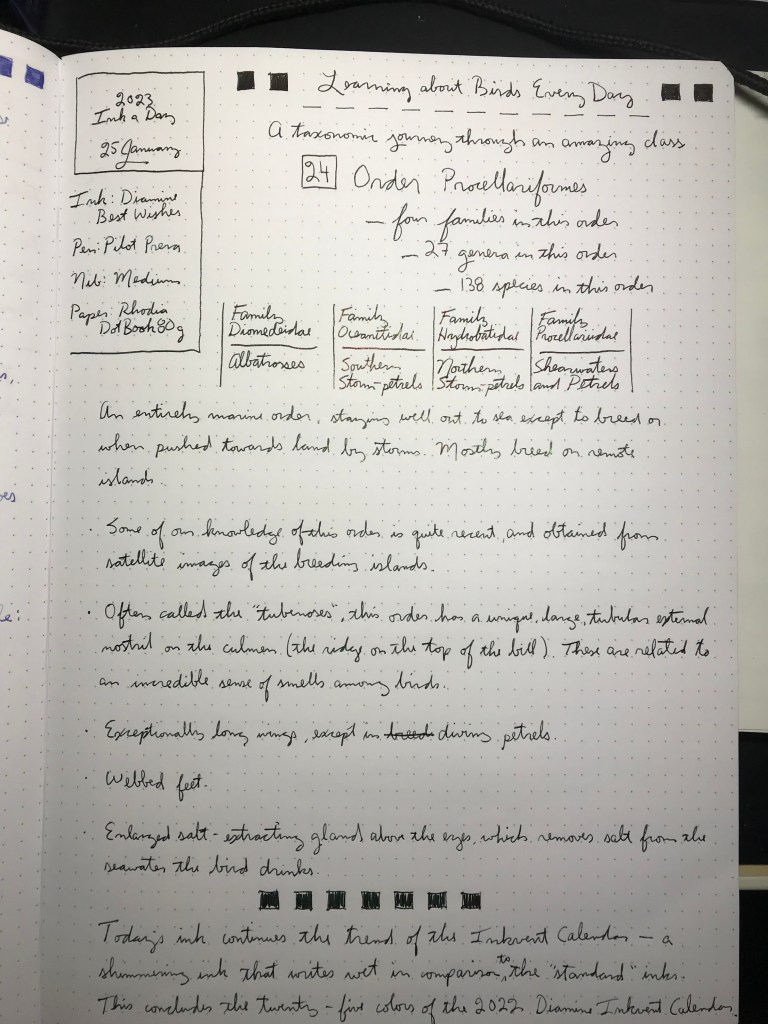 2023
Ink a Day
25 January
Ink: Diamine
Best Wishes
Pen: Pilot Prera
Nib: Medium
Paper: Rhodia
DotBook 80g
Learning about Birds Every Day
A taxonomic journey through an amazing class
24 Order Procellariiformes
– four families in this order
– 27 genera in this order
– 138 species in this order
Family Diomedeidae
Albatrosses
Family Oceanitidae
Southern Storm-petrels
Family Hydrobatidae
Northern Storm-petrels
Family Procellariidae
Shearwaters and Petrels
An entirely marine order, staying well out to sea except to breed or
when pushed towards land by storms. Mostly breed on remote
islands.
· Some of our knowledge of this order is quite recent, and obtained from
satellite images of the breeding islands.
· Often called the "tubenoses", this order has a unique, large, tubular external
nostril on the culmen (the ridge on the top of the bill). These are related to
an incredible sense of smells among birds.
· Exceptionally long wings, except in breed diving petrels.
· Webbed feet.
· Enlarged salt-extracting gland above the eyes, which removes salt from the
seawater the bird drinks.
Today's ink continues the trend of the Inkvent Calendar – a
shimmering ink that writes wet in comparison to the "standard" inks.
This concludes the twenty-five colors of the 2022 Diamine Inkvent Calendar.